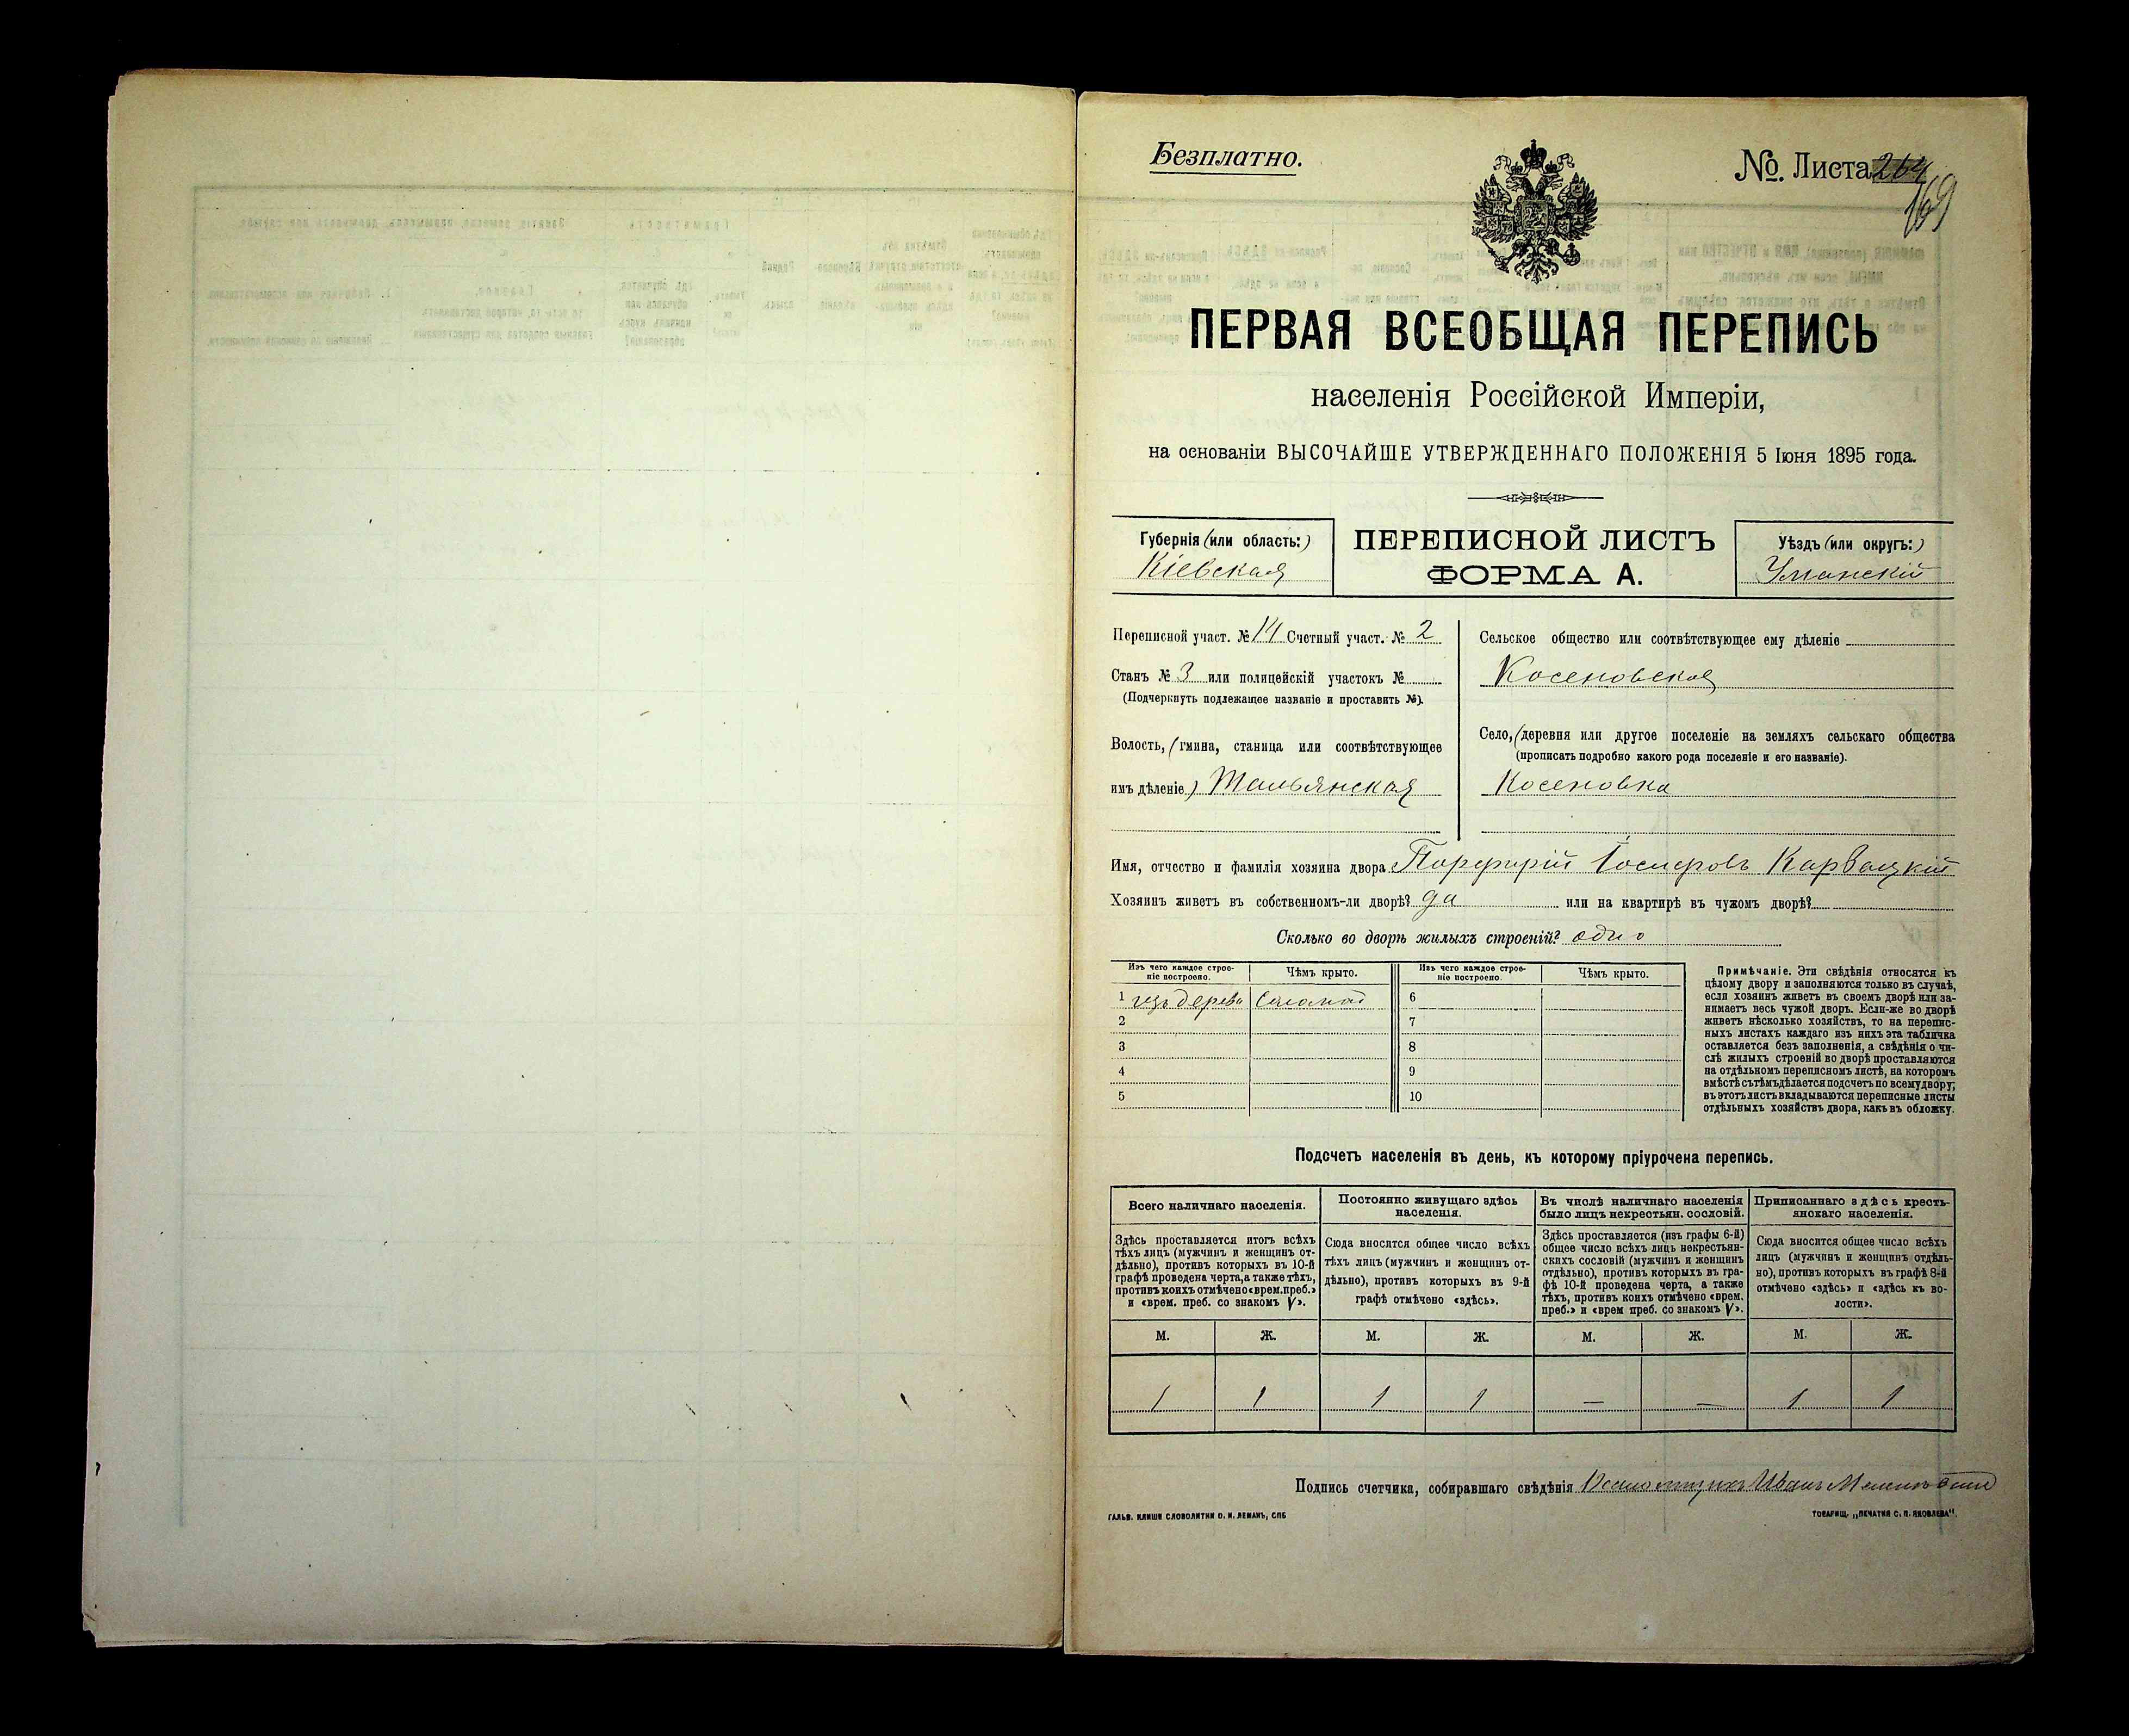 Безплатно.
№. Листа 264
169
ПЕРВАЯ ВСЕОБЩАЯ ПЕРЕПИСЬ
населенія Россійской Имперіи,
на основаніи ВЫСОЧАЙШЕ УТВЕРЖДЕННАГО ПОЛОЖЕНІЯ 5 Іюня 1895 года.
Губернія (или область:)
Кіевская
ПЕРЕПИСНОЙ ЛИСТЪ
ФОРМА А.
Уѣздъ (или округъ:)
Уманскій
Переписной участ. № 14 Счетный участ. № 2
Станъ № 3 или полицейскій участокъ №
(Подчеркнуть подлежащее названіе и проставить №).
Волость, (гмина, станица или соотвѣтствующее
имъ дѣленіе) Тальянская
Сельское общество или соотвѣтствующее ему дѣленіе
Косеновское
Село, (деревня или другое поселеніе на земляхъ сельскаго общества
(прописать подробно какого рода поселеніе и его названіе).
Косеновка
Имя, отчество и фамилія хозяина двора Порфирій Карвацкій
Хозяинъ живетъ въ собственномъ-ли дворѣ? да или на квартирѣ въ чужомъ дворѣ?
Сколько во дворѣ жилыхъ строеній? одно
Изъ чего каждое строе-
ніе построено.
Чѣмъ крыто.
Изъ чего каждое строе-
ніе построено.
Чѣмъ крыто.
1 изъ дерева Соломой 6
2 7
3 8
4 9
5 10
Примѣчаніе. Эти свѣдѣнія относятся къ
цѣлому двору и заполняются только въ случаѣ,
если хозяинъ живетъ въ своемъ дворѣ или за-
нимаетъ весь чужой дворъ. Если-же во дворѣ
живетъ нѣсколько хозяйствъ, то на перепис-
ныхъ листахъ каждаго изъ нихъ эта табличка
оставляется безъ заполненія, а свѣдѣнія о чи-
слѣ жилыхъ строеній во дворѣ проставляются
на отдѣльномъ переписномъ листѣ, на которомъ
вмѣстѣ съ тѣмъ дѣлается подсчетъ по всему двору;
въ этотъ листъ вкладываются переписные листы
отдѣльныхъ хозяйствъ двора, какъ въ обложку.
Подсчетъ населенія въ день, къ которому пріурочена перепись.
Всего наличнаго населенія.
Здѣсь проставляется итогъ всѣхъ
тѣхъ лицъ (мужчинъ и женщинъ от-
дѣльно), противъ которыхъ въ 10-й
графѣ проведена черта, а также тѣхъ,
противъ коихъ отмѣчено «врем. преб.»
и «врем. преб. со знакомъ V».
Постоянно живущаго здѣсь
населенія.
Сюда вносится общее число всѣхъ
тѣхъ лицъ (мужчинъ и женщинъ от-
дѣльно), противъ которыхъ въ 9-й
графѣ отмѣчено «здѣсь».
Въ числѣ наличнаго населенія
было лицъ некрестьян. сословій.
Здѣсь проставляется (изъ графы 6-й)
общее число всѣхъ лицъ некрестьян-
скихъ сословій (мужчинъ и женщинъ
отдѣльно), противъ которыхъ въ гра-
фѣ 10-й проведена черта, а также
тѣхъ, противъ коихъ отмѣчено «врем.
преб.» и «врем преб. со знакомъ V».
Приписаннаго здѣсь кресть-
янскаго населенія.
Сюда вносится общее число всѣхъ
лицъ (мужчинъ и женщинъ отдѣль-
но), противъ которыхъ въ графѣ 8-й
отмѣчено «здѣсь» и «здѣсь къ во-
лости».
М. Ж. М. Ж. М. Ж. М. Ж.
1 1 1 1 — — 1 1
Подпись счетчика, собиравшаго свѣдѣнія Иванъ
ГАЛЬВ. КЛИШЕ СЛОВОЛИТНИ О. И. ЛЕМАНЪ, СПБ
ТОВАРИЩ. „ПЕЧАТНЯ С. П. ЯКОВЛЕВА".